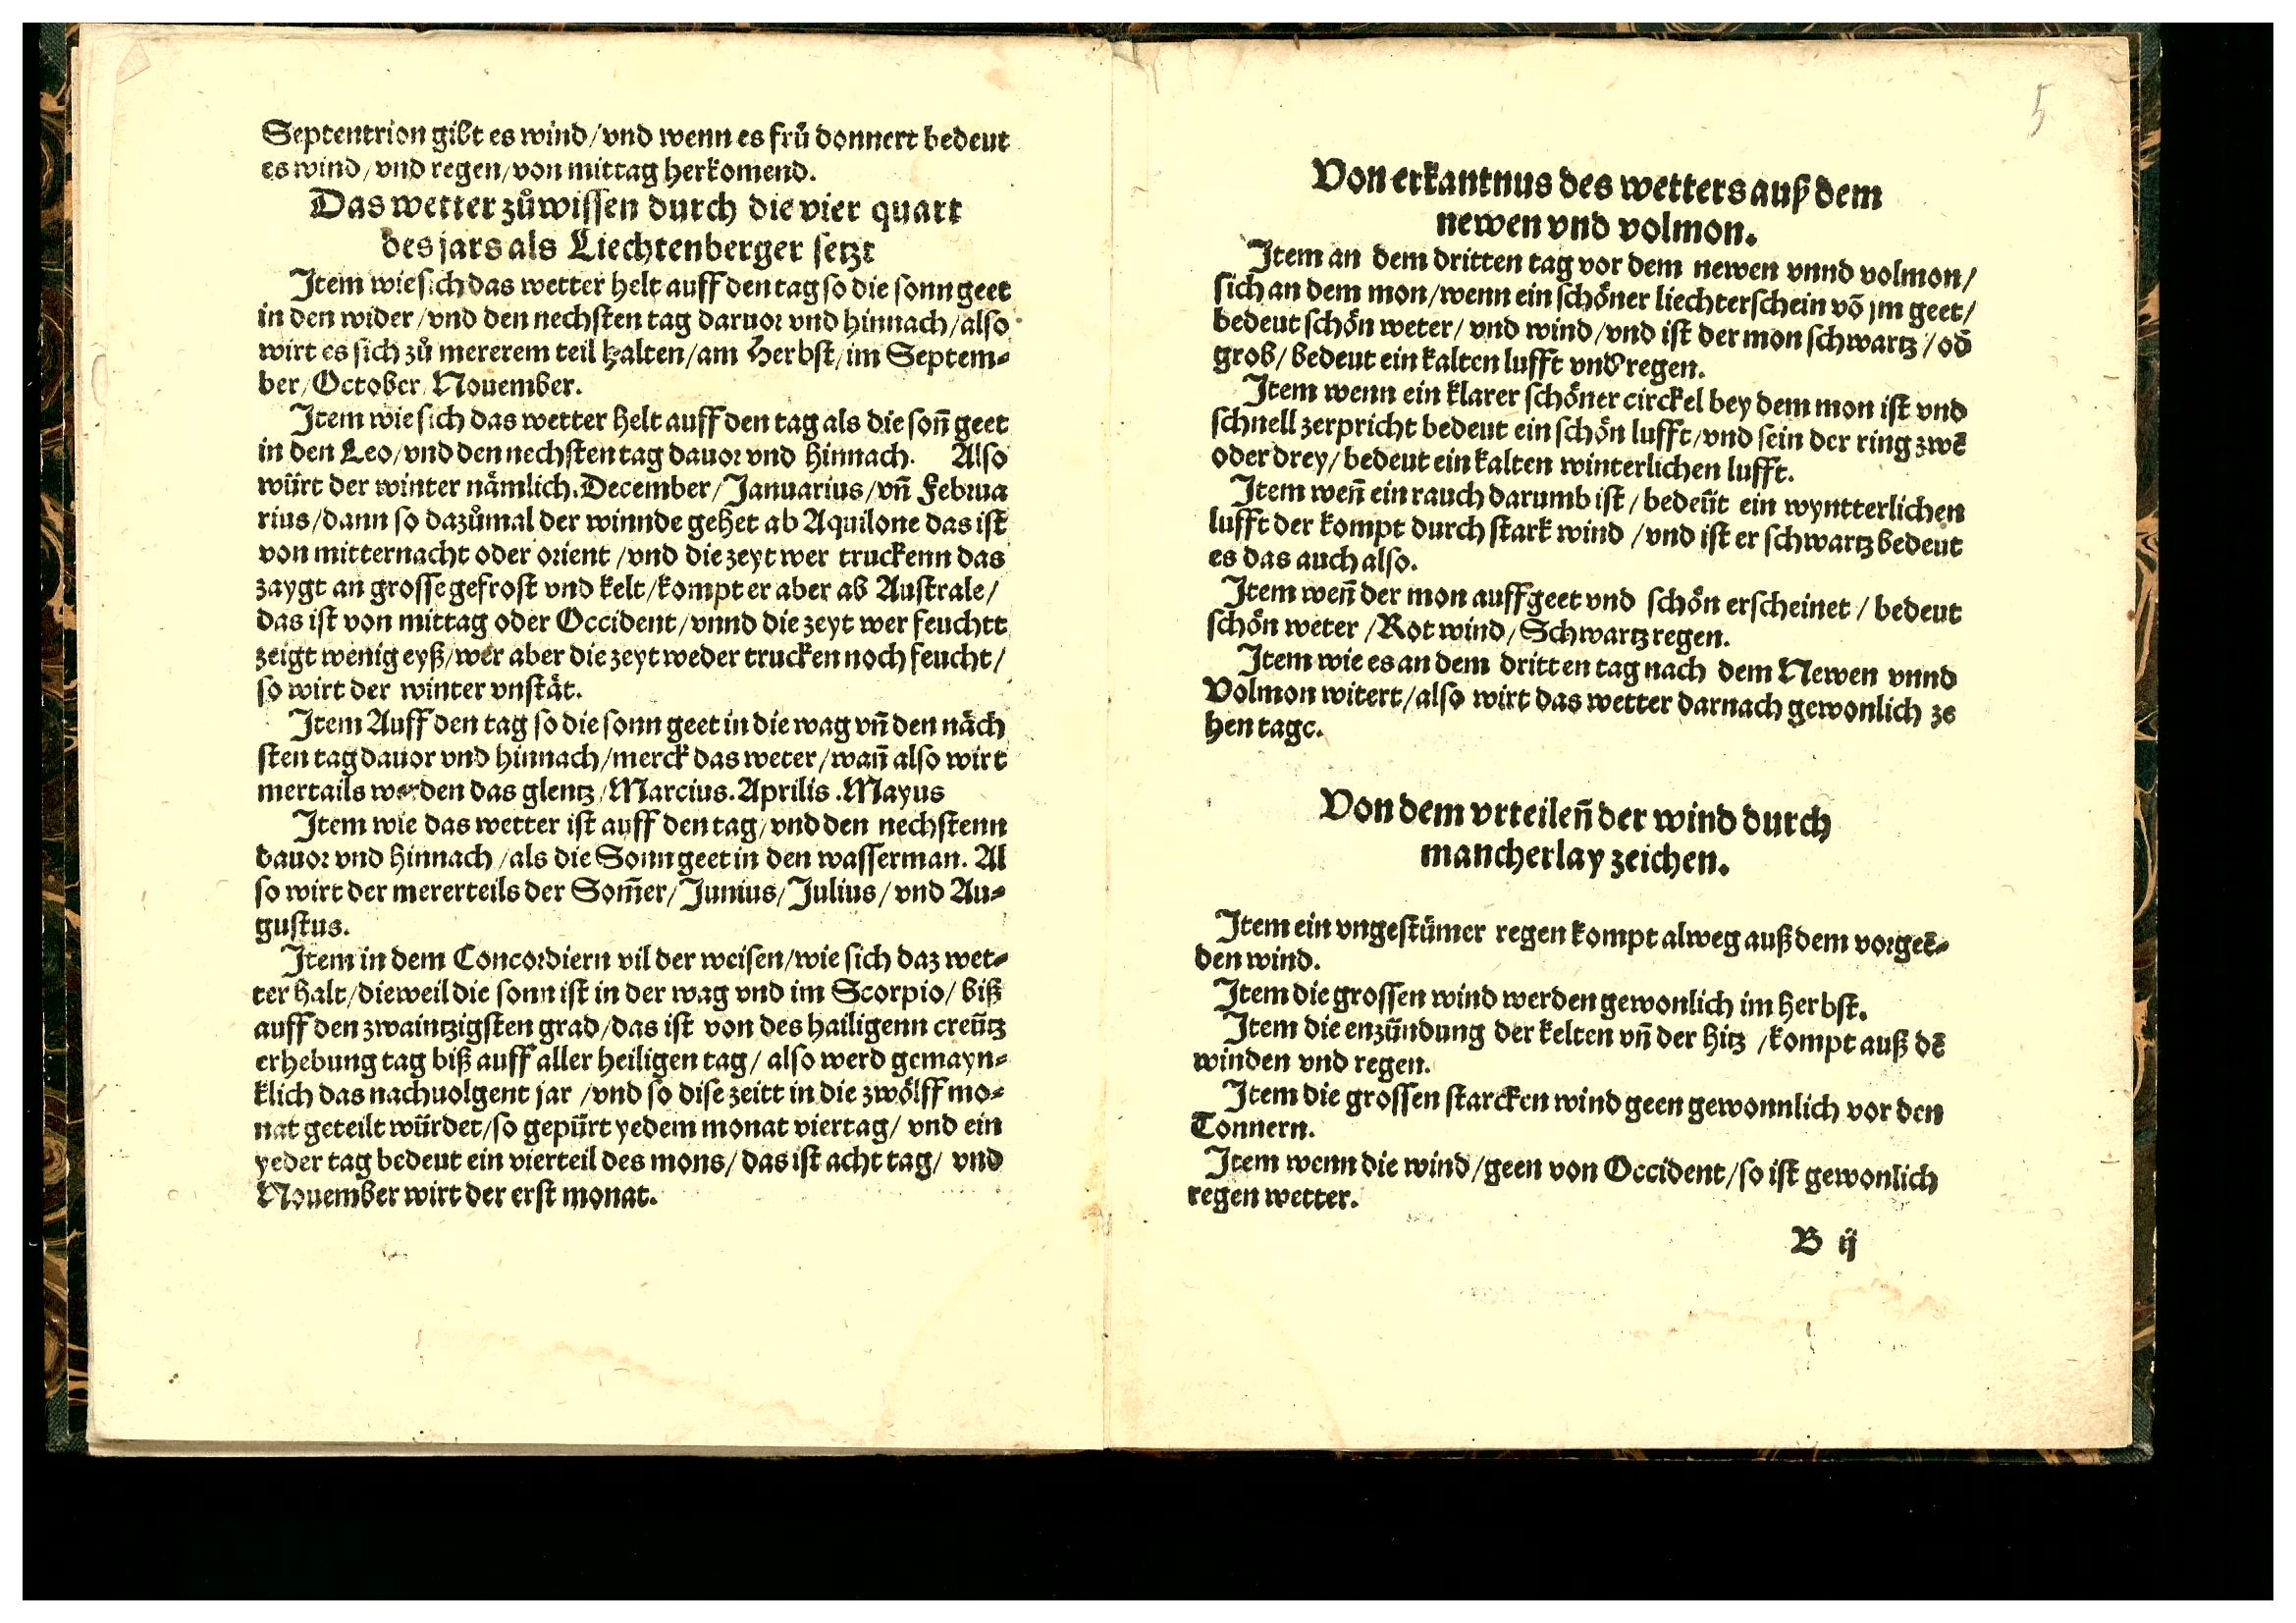 Septentrion gibt es wind/vnd wenn es frů donnert bedeut
es wind/vnd regen/von mittag herkomend.
Das wetter zůwissen durch die vier quart
des jars als Liechtenberger setzt
Item wie sich das wetter helt auff den tag so die sonn geet
in den wider/vnd den nechsten tag daruor vnd hinnach/also
wirt es sich zů mererem teil halten/am Herbst/im Septem-
ber/October/Nouember.
Item wie sich das wetter helt auff den tag als die soñ geet
in den Leo/vnd den nechsten tag dauor vnd hinnach. Also
würt der winter nämlich.December/Januarius/vñ Februa
rius/dann so dazůmal der winnde gehet ab Aquilone das ist
von mitternacht oder orient/vnd die zeyt wer truckenn das
zaygt an grosse gefrost vnd kelt/kompt er aber ab Australe/
das ist von mittag oder Occident/vnnd die zeyt wer feuchtt
zeigt wenig eyß/wer aber die zeyt weder trucken noch feucht/
so wirt der winter vnstät.
Item Auff den tag so die sonn geet in die wag vñ den näch
sten tag dauor vnd hinnach/merck das weter/wañ also wirt
mertails werden das glentz/Marcius.Aprilis.Mayus
Item wie das wetter ist auff den tag/vnd den nechstenn
dauor vnd hinnach/als die Sonn geet in den wasserman. Al
so wirt der mererteils der Som̃er/Junius/Julius/vnd Au-
gustus.
Item in dem Concordiern vil der weisen/wie sich daz wet-
ter halt/dieweil die sonn ist in der wag vnd im Scorpio/biß
auff den zwaintzigsten grad/das ist von des hailigenn creütz
erhebung tag biß auff aller heiligen tag/also werd gemayn-
klich das nachuolgent jar/vnd so dise zeitt in die zwölff mo-
nat geteilt würdet/so gepürt yedem monat viertag/vnd ein
yeder tag bedeut ein vierteil des mons/das ist acht tag/vnd
Nouember wirt der erst monat.
5
Von erkantnus des wetters auß dem
newen vnd volmon.
Item an dem dritten tag vor dem newen vnnd volmon/
sich an dem mon/wenn ein schöner liechterschein võ jm geet/
bedeut schön weter/vnd wind/vnd ist der mon schwartz/od̃
grob/bedeut ein kalten lufft vnd regen.
Item wenn ein klarer schöner circkel bey dem mon ist vnd
schnell zerpricht bedeut ein schön lufft/vnd sein der ring zwẽ
oder drey/bedeut ein kalten winterlichen lufft.
Item weñ ein rauch darumb ist/bedeüt ein wyntterlichen
lufft der kompt durch stark wind/vnd ist er schwartz bedeut
es das auch also.
Item weñ der mon auffgeet vnd schön erscheinet/bedeut
schön weter/Rot wind/Schwartz regen.
Item wie es an dem dritten tag nach dem Newen vnnd
Volmon witert/also wirt das wetter darnach gewonlich ze
hen tage.
Von dem vrteileñ der wind durch
mancherlay zeichen.
Item ein vngestümer regen kompt alweg auß dem vorgeẽ-
den wind.
Item die grossen wind werden gewonlich im Herbst.
Item die enzündung der kelten vñ der hitz/kompt auß dẽ
winden vnd regen.
Item die grossen starcken wind geen gewonnlich vor den
Tonnern.
Item wenn die wind/geen von Occident/so ist gewonlich
regen wetter.
B ij